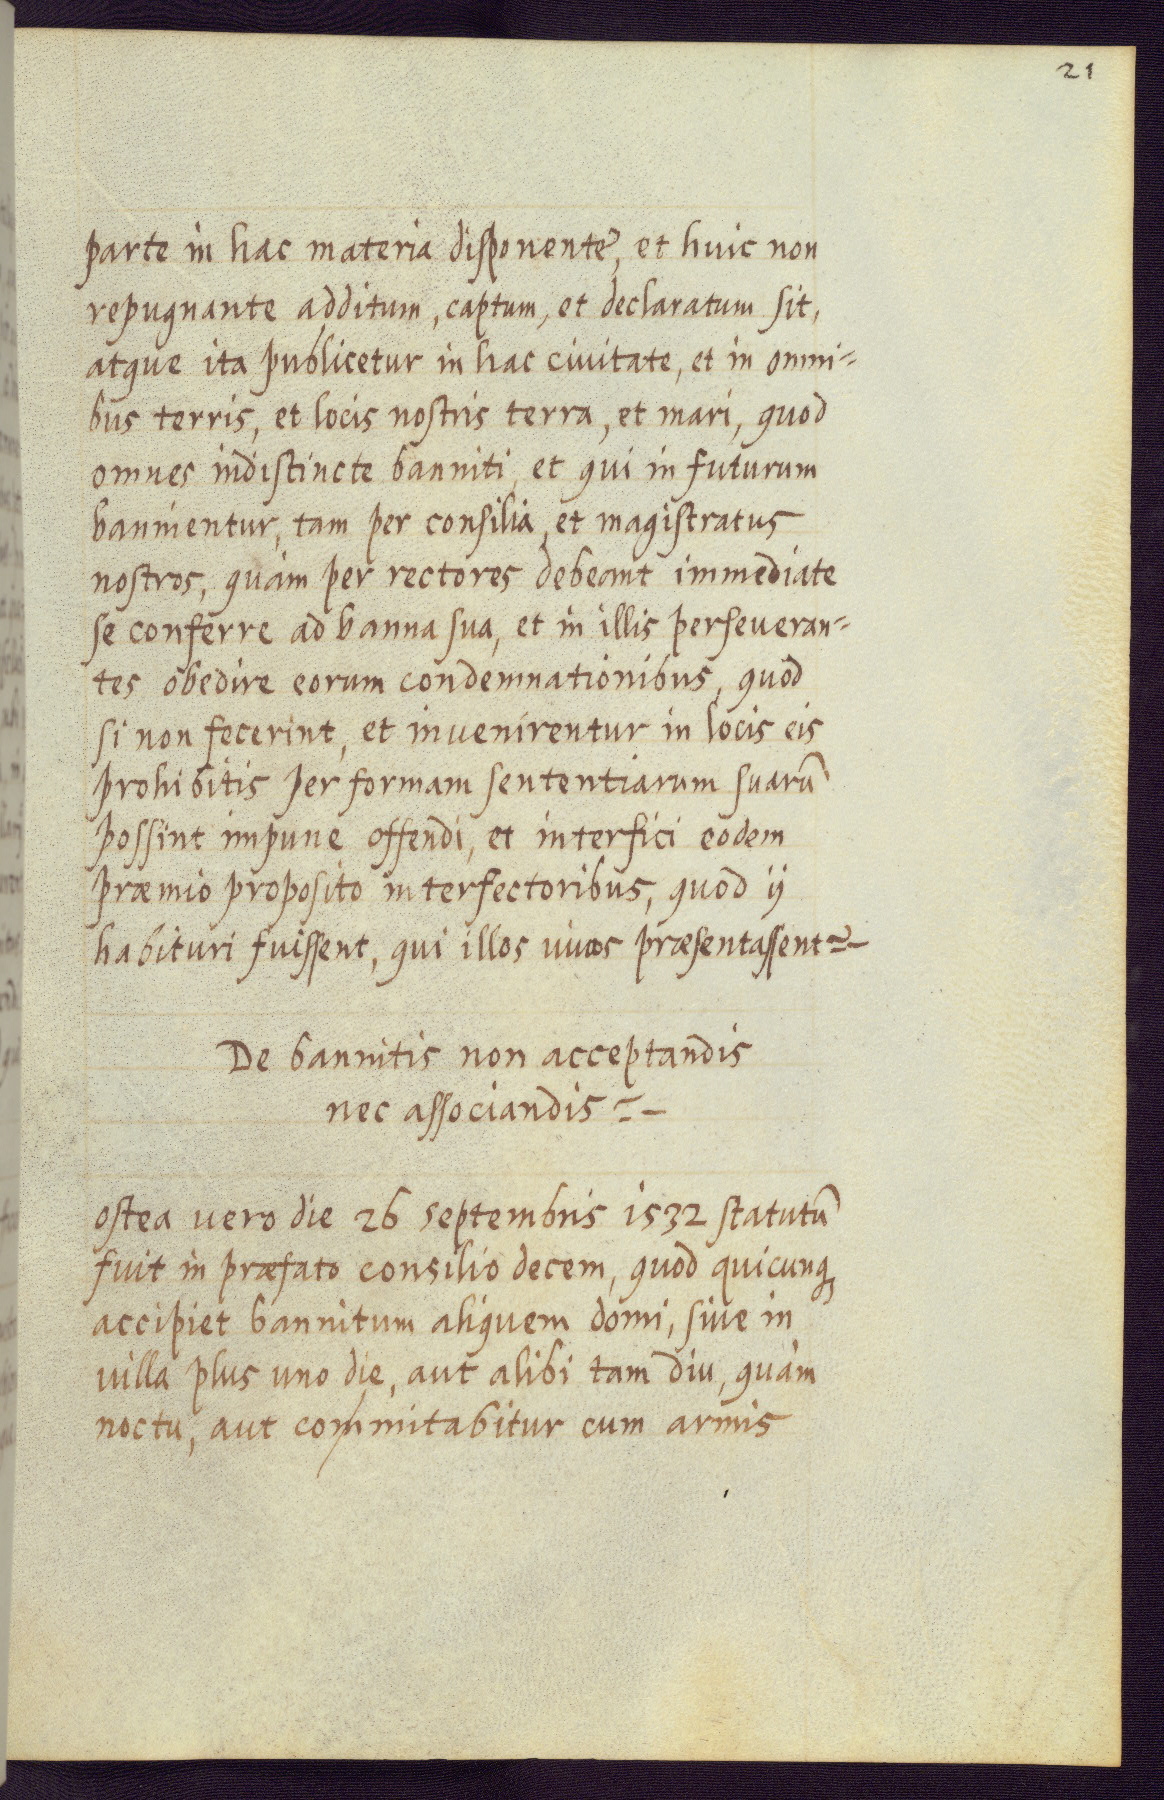 21
parte in hac materia disponente, et huic non
repugnante additum, captum, et declaratum sit,
atque ita publicetur in hac ciuitate, et in omni=
bus terris, et locis nostris terra, et mari, quod
omnes indistincte banniti, et qui in futurum
bannientur, tam per consilia, et magistratus
nostros, quàm per rectores debeant immediate
se conferre ad banna sua, et in illis perseueran=
tes obedire eorum condemnationibus, quod
si non fecerint, et invenirentur in locis eis
prohibitis per formam sententiarum suarū
possint impune offendi, et interfici eodem
præmio proposito interfectoribus, quod ij
habituri fuissent, qui illos uiuos præsentassent=-
De bannitis non acceptandis
nec associandis=-
ostea vero die 26 septembris 1532 statutū
fuit in præfato consilio decem, quod quicunq
accipiet bannitum aliquem domi, siue in
uilla plus uno die, aut alibi tam diu, quàm
noctu, aut commitabitur cum armis